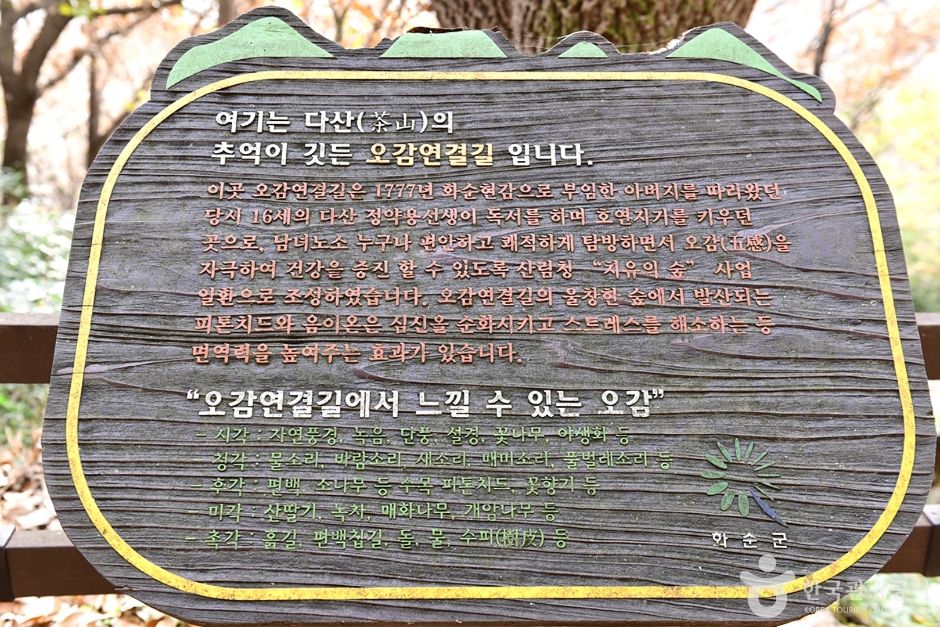 여기는 다산(茶山)의
추억이 깃든 오감연결길 입니다.
이곳 오감연결길은 1777년 화순현감으로 부임한 아버지를 따라왔던
당시 16세의 다산 정약용선생이 독서를 하며 호연지기를 키우던
곳으로, 남녀노소 누구나 편안하고 쾌적하게 탐방하면서 오감(五感)을
자극하여 건강을 증진 할 수 있도록 산림청 “치유의 숲” 사업
일환으로 조성하였습니다. 오감연결길의 울창한 숲에서 발산되는
피톤치드와 음이온은 심신을 순화시키고 스트레스를 해소하는 등
면역력을 높여주는 효과가 있습니다.
“오감연결길에서 느낄 수 있는 오감”
- 시각 : 자연풍경, 녹음, 단풍, 설경, 꽃나무, 야생화 등
- 청각 : 물소리, 바람소리, 새소리, 매미소리, 풀벌레소리 등
- 후각 : 편백 소나무 등 수목 피톤치드, 꽃향기 등
- 미각 : 산딸기, 녹차, 매화나무, 개암나무 등
- 촉각 : 흙길, 편백칩길, 돌, 물, 수피(樹皮) 등
화순군
한국관광공사
KOREA TOURISM ORGANIZATION